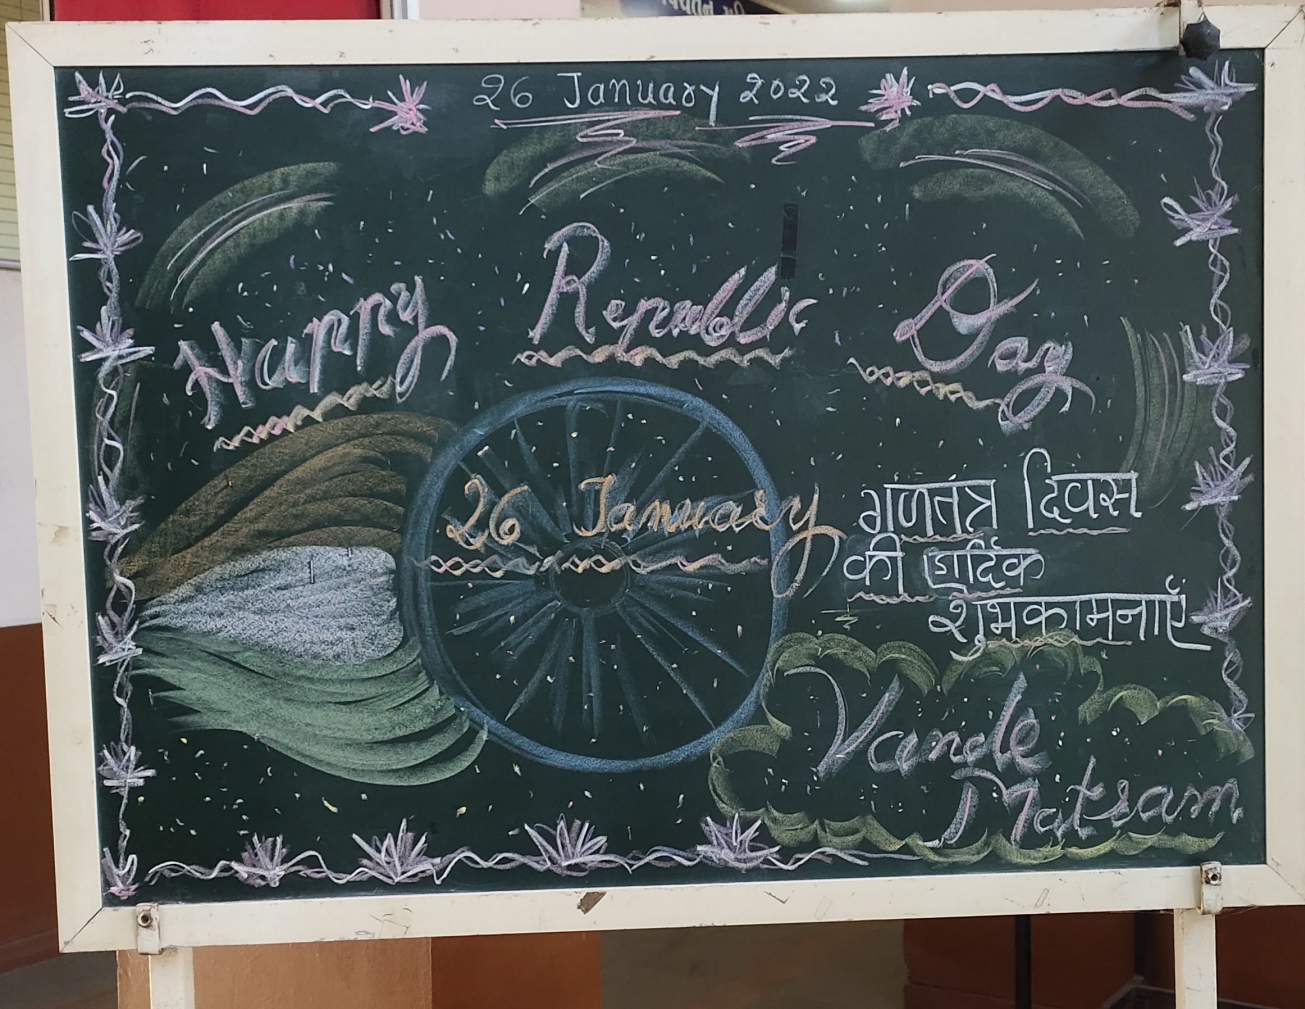 26 January 2022
Happy Republic Day
26 January
गणतंत्र दिवस
की हार्दिक
शुभकामनाएँ
Vande
Matram